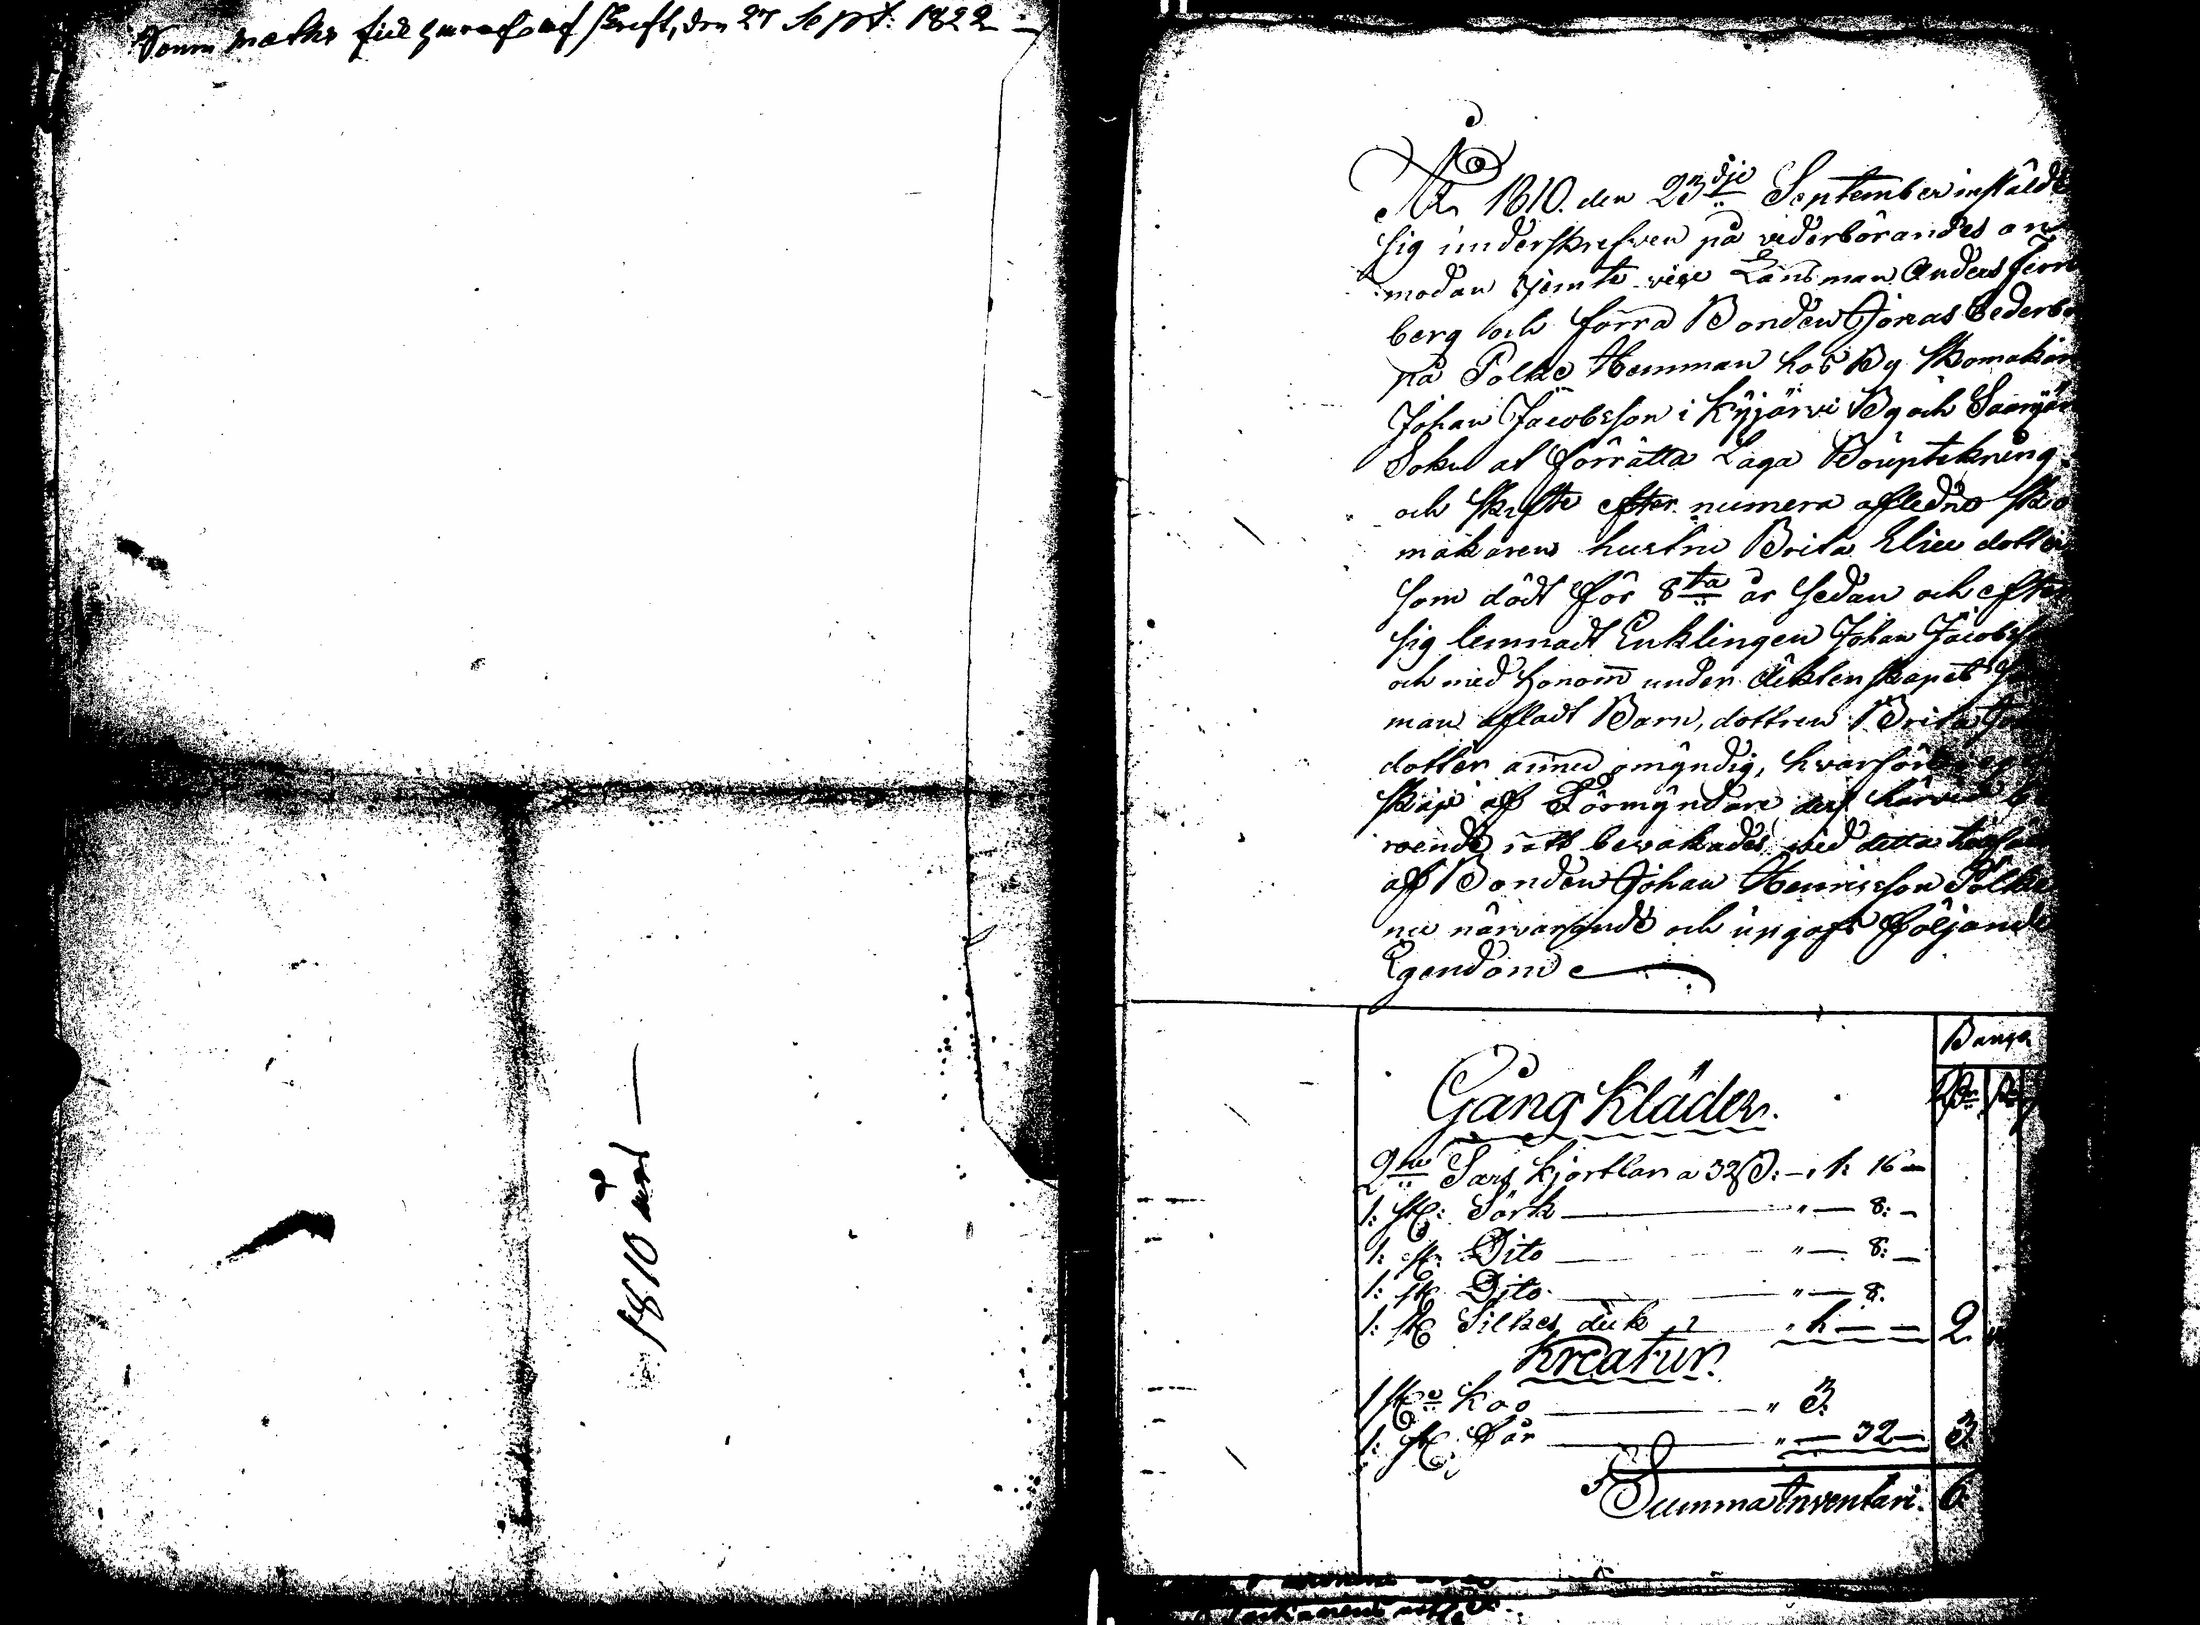 den 27 Sept: 1822 —
1810 års —
År 1810. den 23dje September instälde
sig underskrefven på vederbörandes an
modan jemte vice Länsman Anders
berg och förra Bonden Jonas Cederbe
på Polke Hemman hos By Skomakar
Johan Jacobsson i Kyjärvi By och Saarijär
Sokn at förrätta Laga Bouptekning
och skifte efter numera afledno Sko
makaren hustru Brita Elieæ dotter
som dödt för 8ta år sedan och efter
sig lemnadt Enklingen Johan Jacobs
och med honom under äcktenskapet
man afladt Barn, dottren Brita
dotter ännu omyndig, hvarföre
skap af Förmyndare dess härvid be
roende rätt bevakades vid detta
af Bonden Johan Henricsson Polke
nu närvarande och upgafs följande
Egendom
Banco
Gång Kläder.
2ne Sars kjortlar a 32 ß: — 1: 16 —
1: st: Särk — " — 8: —
1: st: Dito — " — 8: —
1: st Dito — " — 8.
1: st Silkes duk " — — 2
Kreatur.
1 st Koo — " 3.
1: st: Får — " — 32 — 3.
Summa Inventari. 6